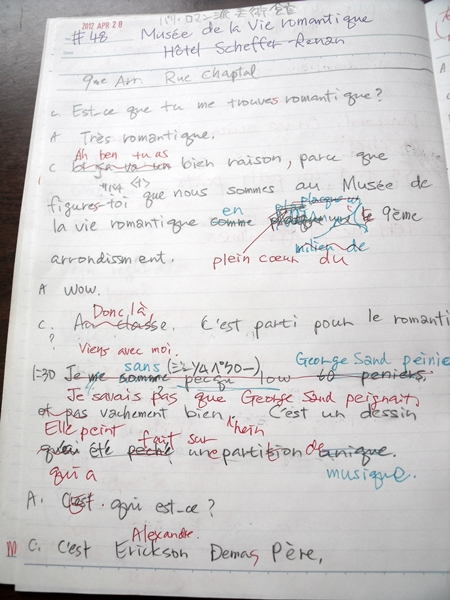 2012 APR 28
パリ・ロマン派美術館
#48 Musée de la Vie romantique
Hôtel Scheffer-Renan
9ème Arr. Rue Chaptal
C. Est-ce que tu me trouves romantique?
A Très romantique.
Ah ben tu as
C bien raison, parce que
figures-toi que nous sommes au Musée de
en plaque
la vie romantique comme le 9ème
milieu de
arrondissment. plein cœur du
A Wow.
Donc là
C. C'est parti pour le romanti
?
Viens avec moi.
sans George Sand peinie
1=30 Je me somme pecqu low 60 peniers.
Je savais pas que George Sand peignait,
et pas vachement bien, hein C'est un dessin
Elle peint fait sur
été peché une partition de unique.
qui a musique.
A. C'est qui est-ce?
Alexandre.
C. C'est Erickson Demas Père,